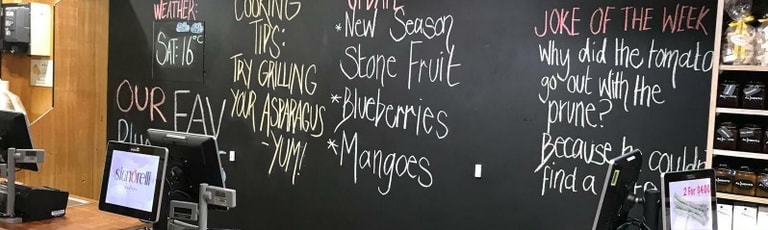 WEATHER:
SAT: 16°C
OUR FAV
COOKING
TIPS:
TRY GRILLING
YOUR ASPARAGUS
- YUM!
UPDATE
*New Season
Stone Fruit
*Blueberries
*Mangoes
JOKE OF THE WEEK
Why did the tomato
go out with the
prune?
Because he couldn't
find a
signorelli
2 For $4.00